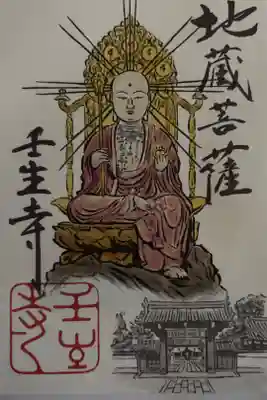 地蔵菩薩
壬生寺
壬生